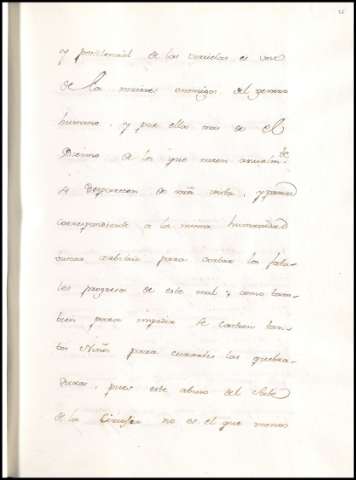 y pestilencial de las viruelas es uno
de los mayores enemigos del genero
humano, y que ellas mas de el
Diezmo de los que nacen anualm.te
desparecen de vista, y parece
correspondiente a la misma humanidad
buscar arbitrio para cortar los fata-
les progresos de este mal; como tam-
bien para impedir se castren tan-
tos Niños para curarles las quebra-
duras, pues este abuso del Arte
de la Cirugia no es el que menos